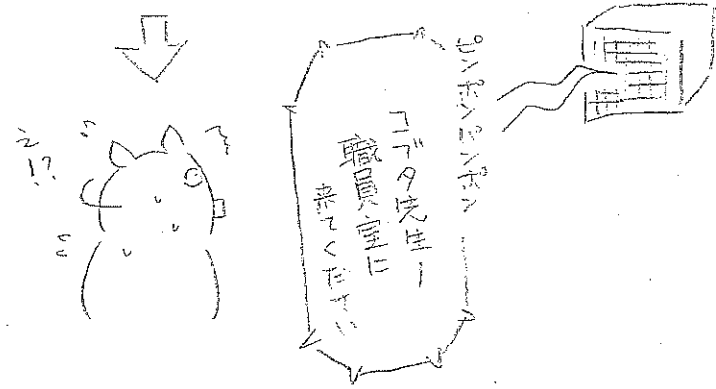 ピンポンパンポン
コブタ先生ー
職員室に
来てください
え
!?